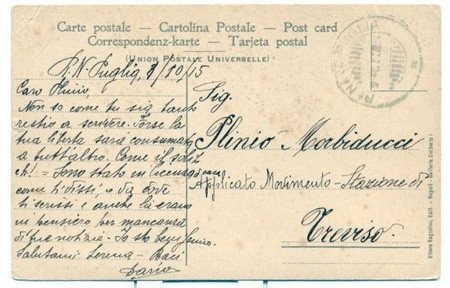 Carte postale – Cartolina Postale – Post card
Correspondenz-karte – Tarjeta postal
(UNION POSTALE UNIVERSELLE)
R. N. Puglia, 8/10/15
Caro Plinio,
Non so come tu sia tanto
restio a scrivere. Forse la
tua libertà sarà consumata
a tutt'altro. Come il solito
Sono stato in licenza
come ti dissi, e da dove
ti scrissi e anche là ero
in pensiero per mancanza
di tue notizie. Io sto benissimo.
Salutami Baci
Dario
Sig.
Plinio Morbiducci
Applicato Movimento - Stazione di
Treviso.
Ettore Ragozino, Edit. - Napoli - Galleria Umberto I